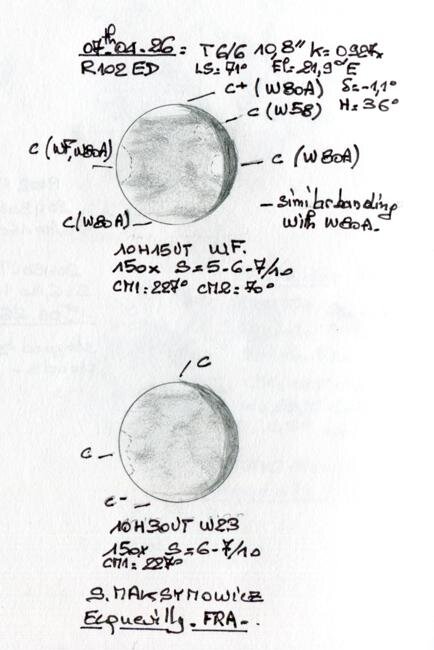 07th.01.26 = T6/6 10,8" K=0,927
R102 ED LS=71° El=21,9° E
C+ (W80A) δ=-1,1°
C (W58) H=36°
C (WF, W80A)
C (W80A)
C (W80A)
- similar banding
with W80A.
10H15UT WF.
150x S=5-6-7/10
CM1=227° CM2=70°
C
C
C-
10H30UT W23
150x S=6-7/10
CM1=227°
S. MAKSYMOWICZ
Ecquevilly. FRA-.